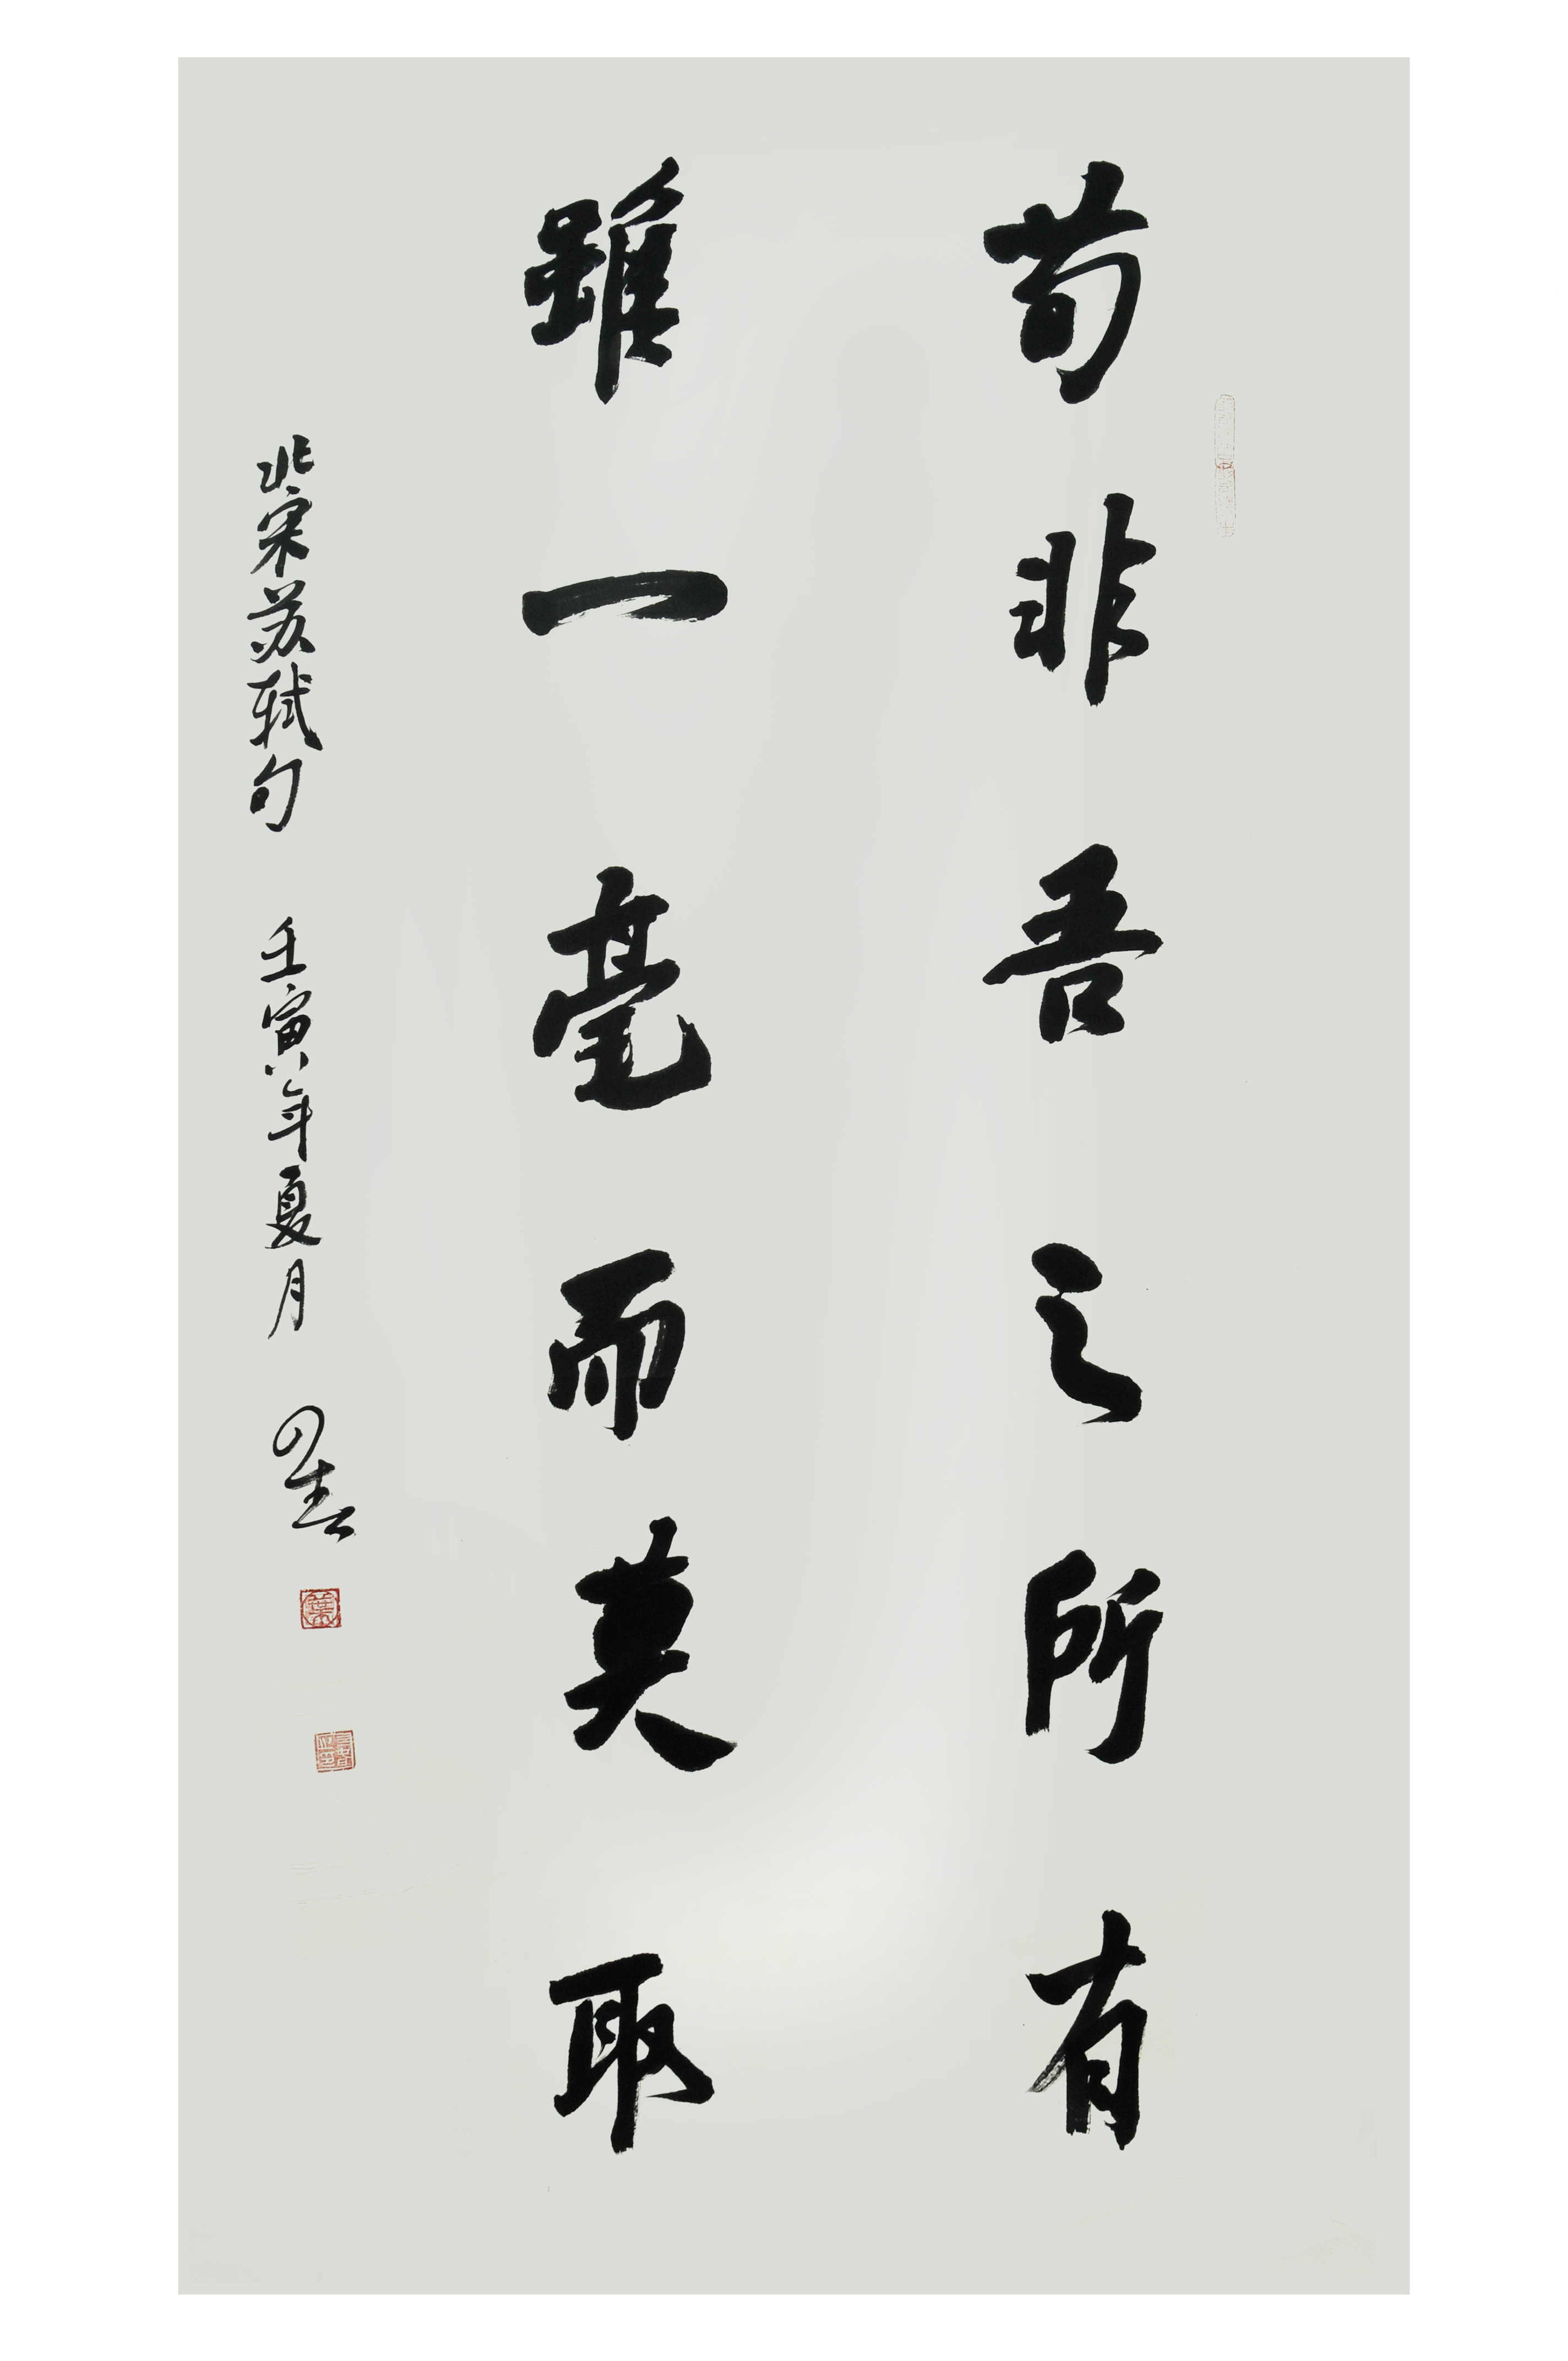 苟非吾之所有
雖一毫而莫取
北宋苏轼句 壬寅年夏月
葉